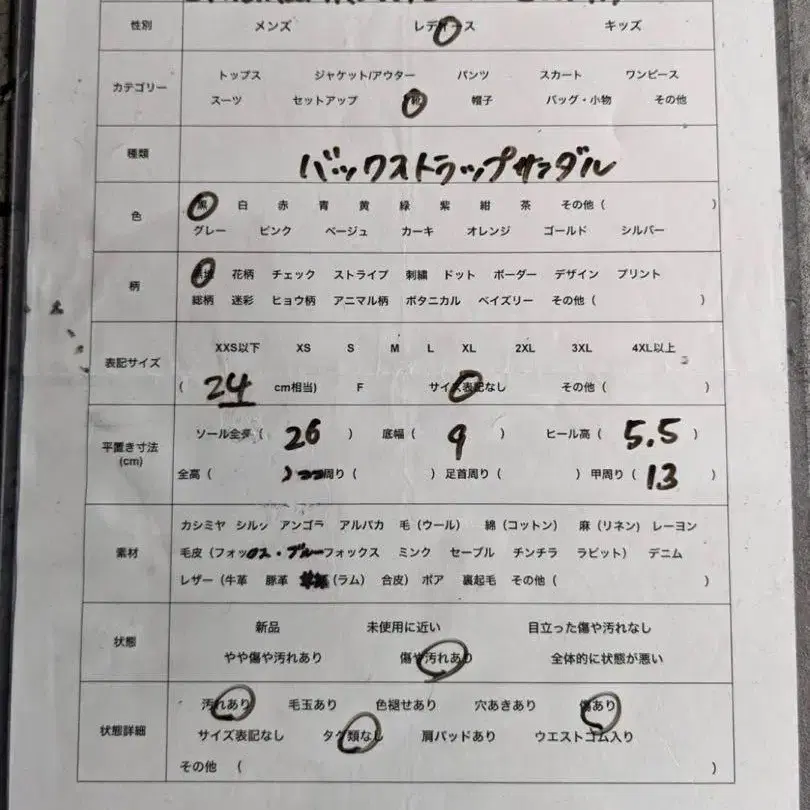 性別 メンズ レディース キッズ
トップス ジャケット/アウター パンツ スカート ワンピース
カテゴリー
スーツ セットアップ 靴 帽子 バッグ・小物 その他
種類 バックストラップサンダル
黒 白 赤 青 黄 緑 紫 紺 茶 その他 ( )
色
グレー ピンク ベージュ カーキ オレンジ ゴールド シルバー
無地 花柄 チェック ストライプ 刺繍 ドット ボーダー デザイン プリント
柄
総柄 迷彩 ヒョウ柄 アニマル柄 ボタニカル ペイズリー その他 ( )
XXS以下 XS S M L XL 2XL 3XL 4XL以上
表記サイズ
( 24 cm相当) F サイズ表記なし その他 ( )
ソール全長 ( 26 ) 底幅 ( 9 ) ヒール高 ( 5.5 )
平置き寸法
(cm)
全高 ( ) 周り ( ) 足首周り ( ) 甲周り ( 13 )
カシミヤ シルク アンゴラ アルパカ 毛 (ウール) 綿 (コットン) 麻 (リネン) レーヨン
素材
毛皮 (フォックス・ブルーフォックス ミンク セーブル チンチラ ラビット) デニム
レザー (牛革 豚革 (ラム) 合皮) ボア 裏起毛 その他 ( )
新品 未使用に近い 目立った傷や汚れなし
状態
やや傷や汚れあり 傷や汚れあり 全体的に状態が悪い
汚れあり 毛玉あり 色褪せあり 穴あきあり 傷あり
状態詳細
サイズ表記なし タグ類なし 肩パッドあり ウエストゴム入り
その他 ( )